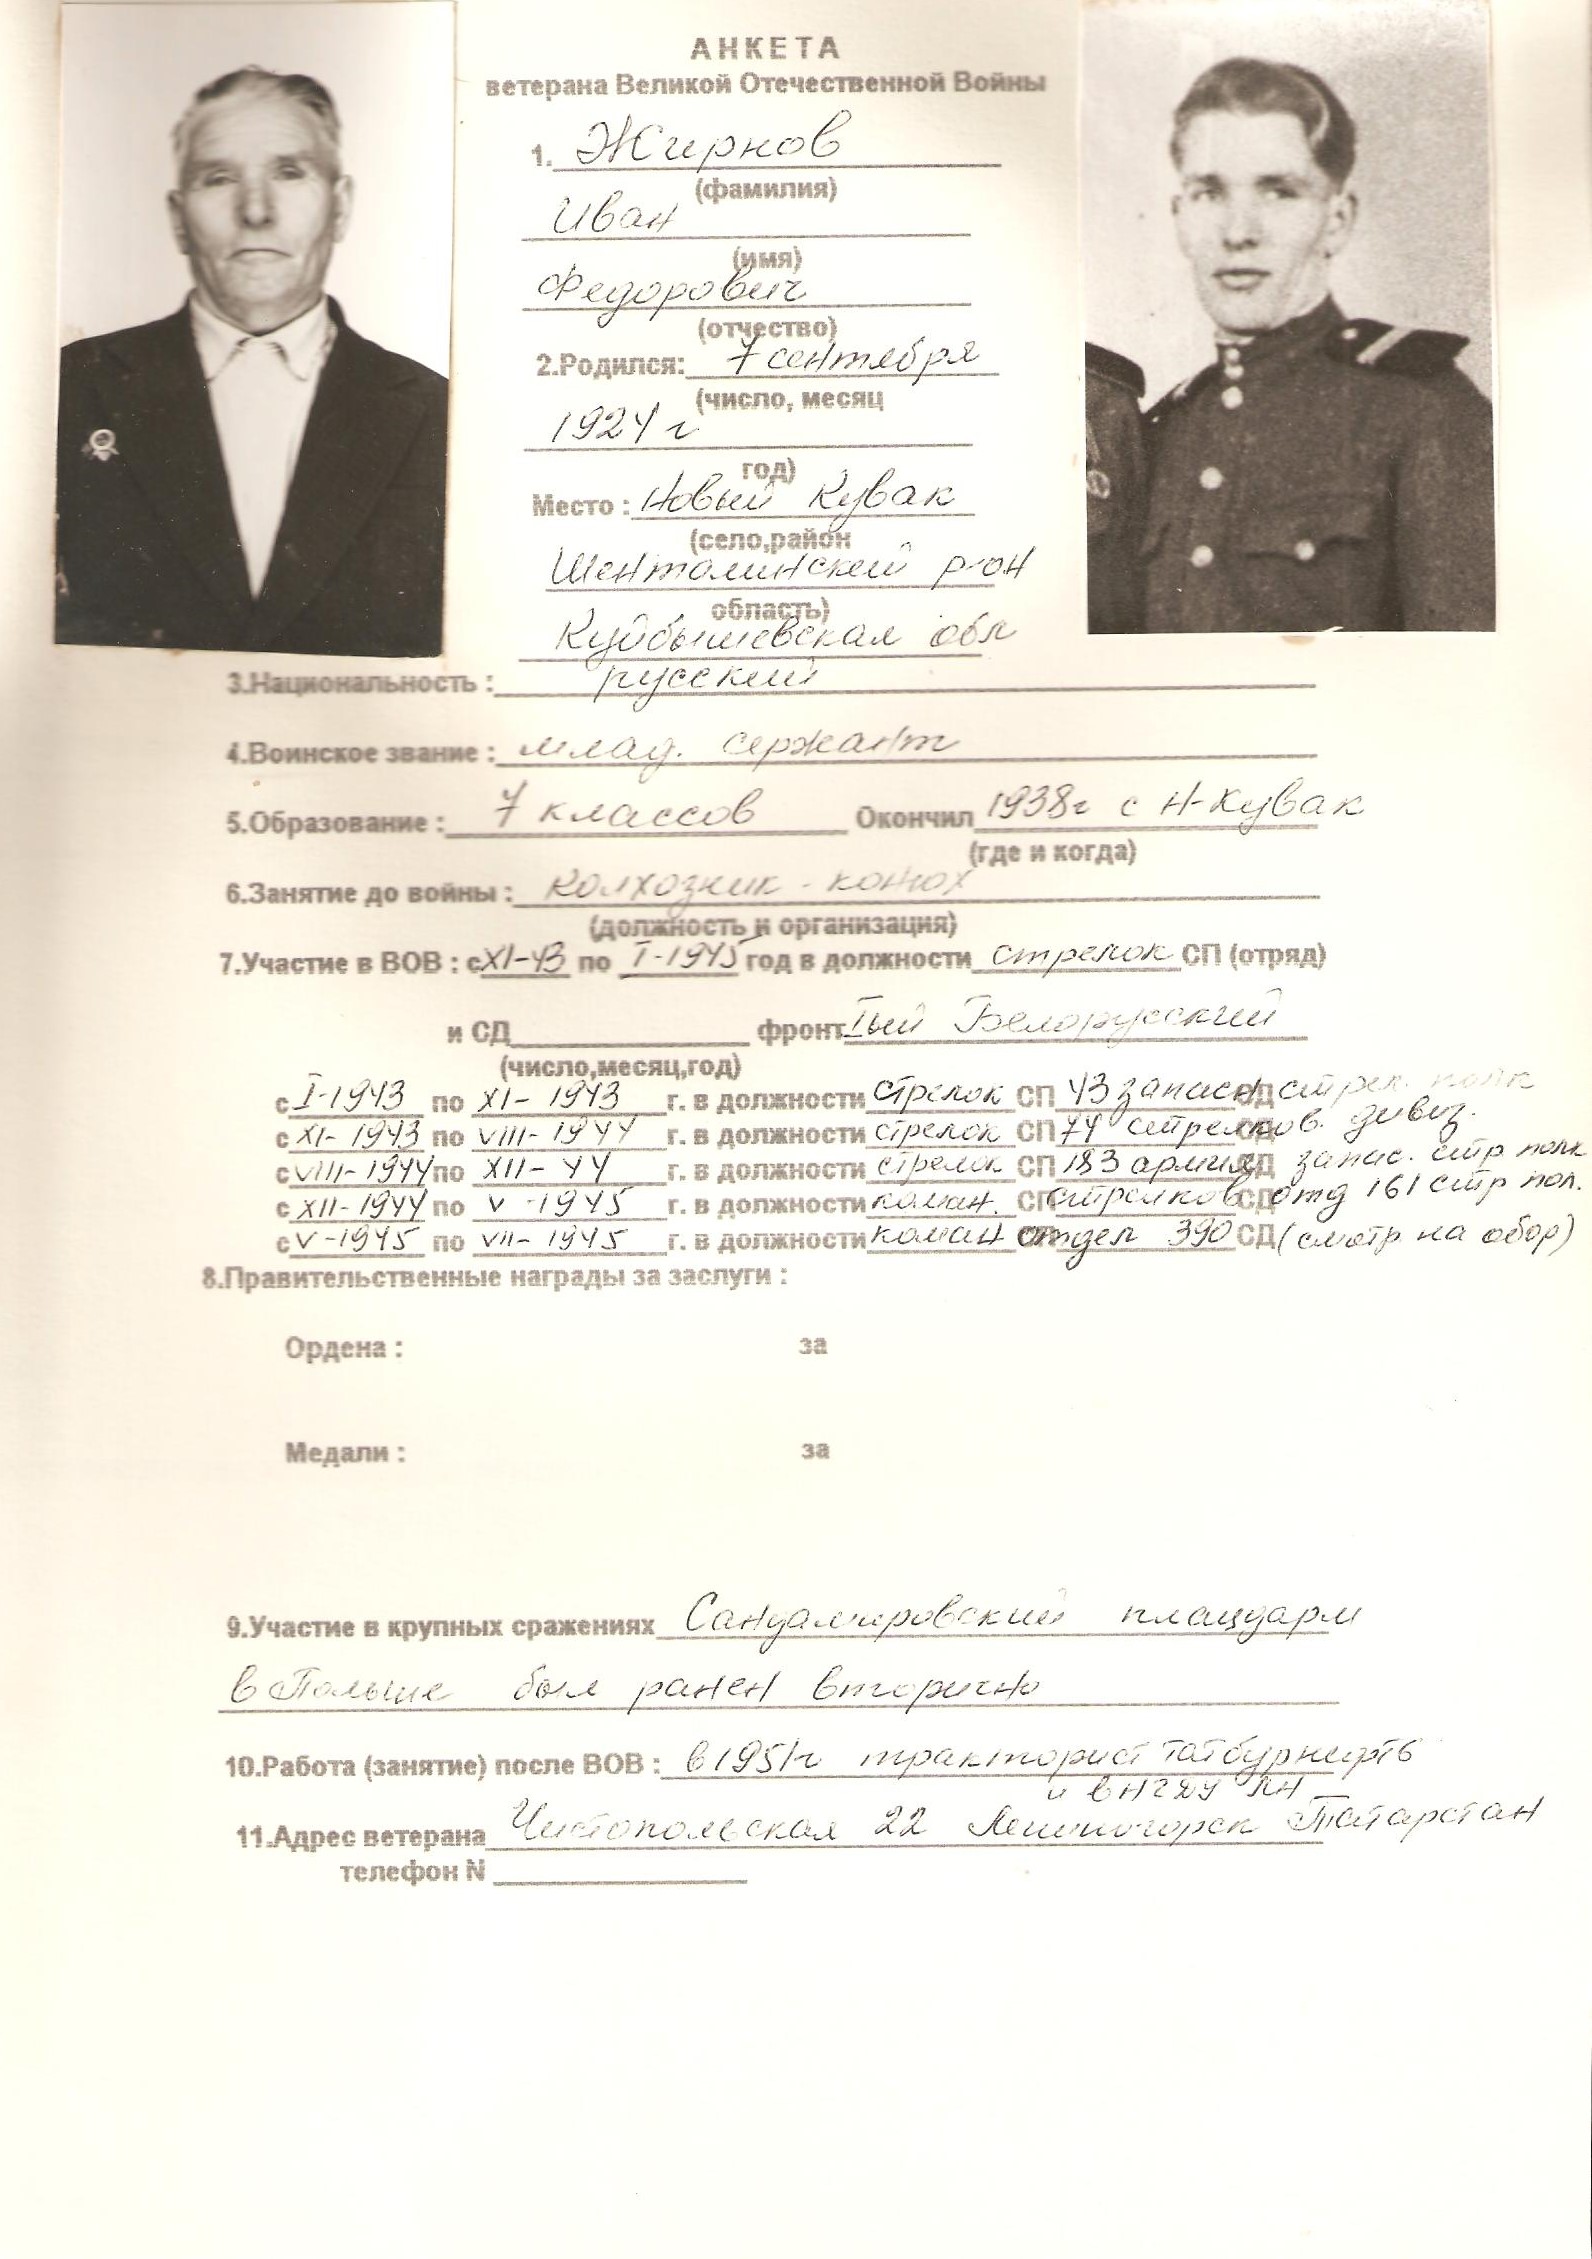 АНКЕТА
ветерана Великой Отечественной Войны
1. Жирнов
(фамилия)
Иван
(имя)
Федорович
(отчество)
2.Родился: 7 сентября
(число, месяц
1924 г
год)
Место : Новый Кувак
(село,район
Шенталинский р-он
область)
Куйбышевская обл
3.Национальность : русский
4.Воинское звание : млад. сержант
5.Образование : 7 классов Окончил 1938г с Н-Кувак
(где и когда)
6.Занятие до войны : колхозник - конюх
(должность и организация)
7.Участие в ВОВ : с XI-43 по I-1945 год в должности стрелок СП (отряд)
и СД фронт Iый Белорусский
(число,месяц,год)
с I-1943 по XI-1943 г. в должности стрелок СП 43 запасн СД стрел. полк
с XI-1943 по VIII-1944 г. в должности стрелок СП 74 стрелков. СД дивиз.
с VIII-1944 по XII-44 г. в должности стрелок СП 183 армия СД запас. стр полк
с XII-1944 по V-1945 г. в должности коман. СП стрелков СД отд 161 стр пол.
с V-1945 по VII-1945 г. в должности коман отдел 390 СД (смотр на обор)
8.Правительственные награды за заслуги :
Ордена : за
Медали : за
9.Участие в крупных сражениях Сандамировский плацдарм
в Польше был ранен вторично
10.Работа (занятие) после ВОВ : в 1951г тракторист Татбурнефть
и в НГДУ ЛН
11.Адрес ветерана Чистопольская 22 Лениногорск Татарстан
телефон N